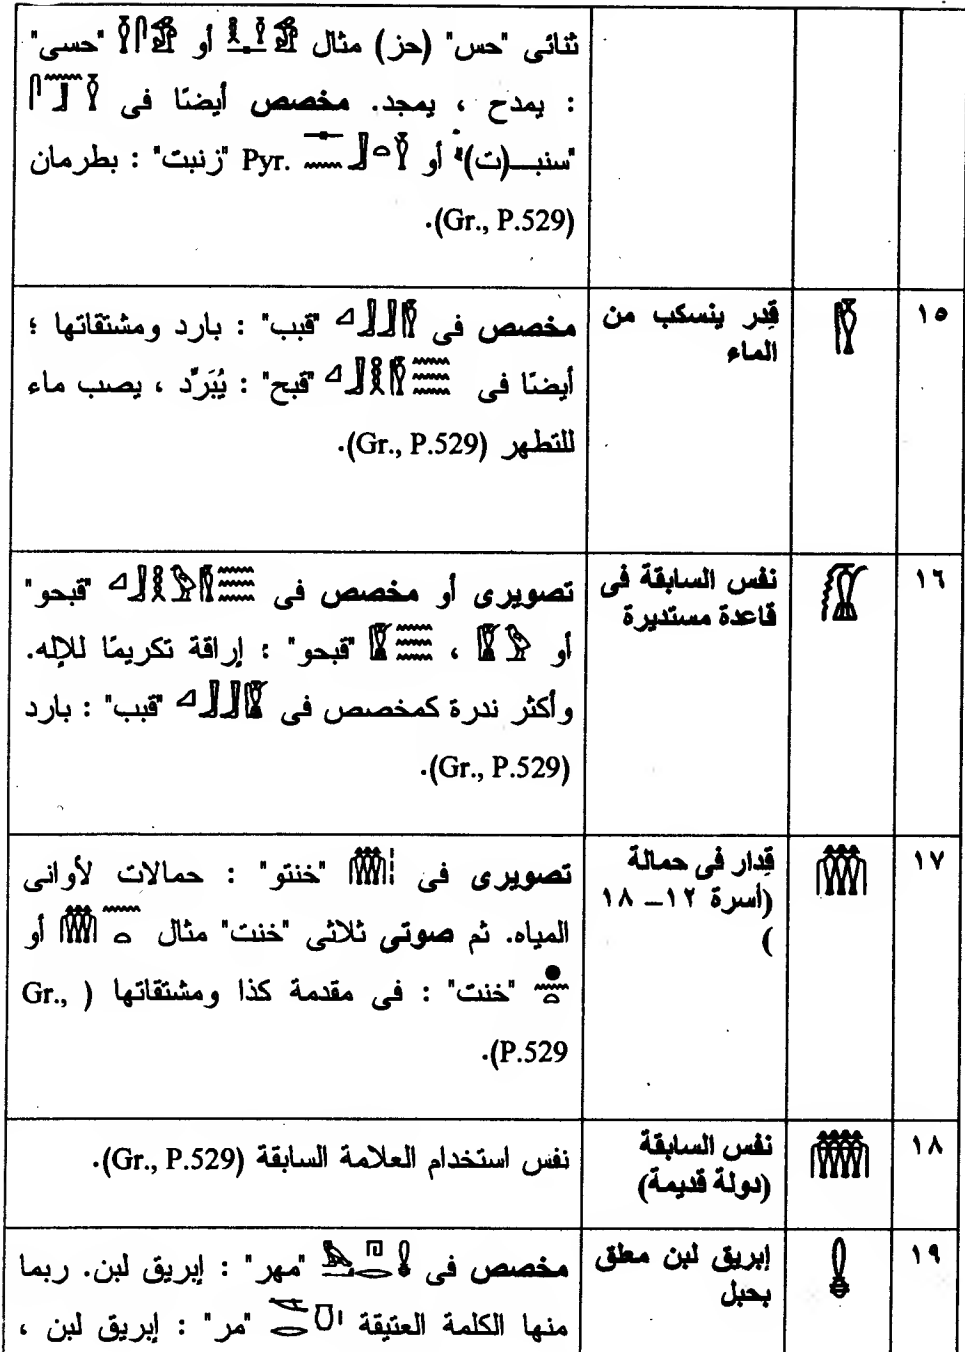 ثنائى "حس" (حز) مثال أو "حسى"
: يمدح ، يمجد. مخصص أيضًا فى
"سنبـ(ت)" أو Pyr. "زنبت" : بطرمان
(Gr., P.529).
١٥
قِدر ينسكب من
الماء
مخصص فى "قبب" : بارد ومشتقاتها ؛
أيضًا فى "قبح" : يُبَرِّد ، يصب ماء
للتطهر (Gr., P.529).
١٦
نفس السابقة فى
قاعدة مستديرة
تصويرى أو مخصص فى "قبحو"
أو ، "قبحو" : إراقة تكريمًا للإله.
وأكثر ندرة كمخصص فى "قبب" : بارد
(Gr., P.529).
١٧
قِدار فى حمالة
(أسرة ١٢– ١٨
)
تصويرى فى "خنتو" : حمالات لأوانى
المياه. ثم صوتى ثلاثى "خنت" مثال أو
"خنت" : فى مقدمة كذا ومشتقاتها ( Gr.,
P.529).
١٨
نفس السابقة
(دولة قديمة)
نفس استخدام العلامة السابقة (Gr., P.529).
١٩
إبريق لبن معلق
بحبل
مخصص فى "مهر" : إبريق لبن. ربما
منها الكلمة العتيقة "مر" : إبريق لبن ،